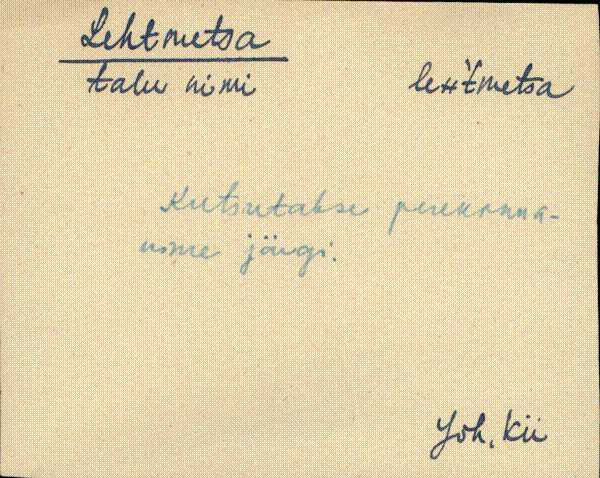 Lehtmetsa
talu nimi leʜt́metsa
Kutsutakse perekonna-
nime järgi.
Joh, Kii